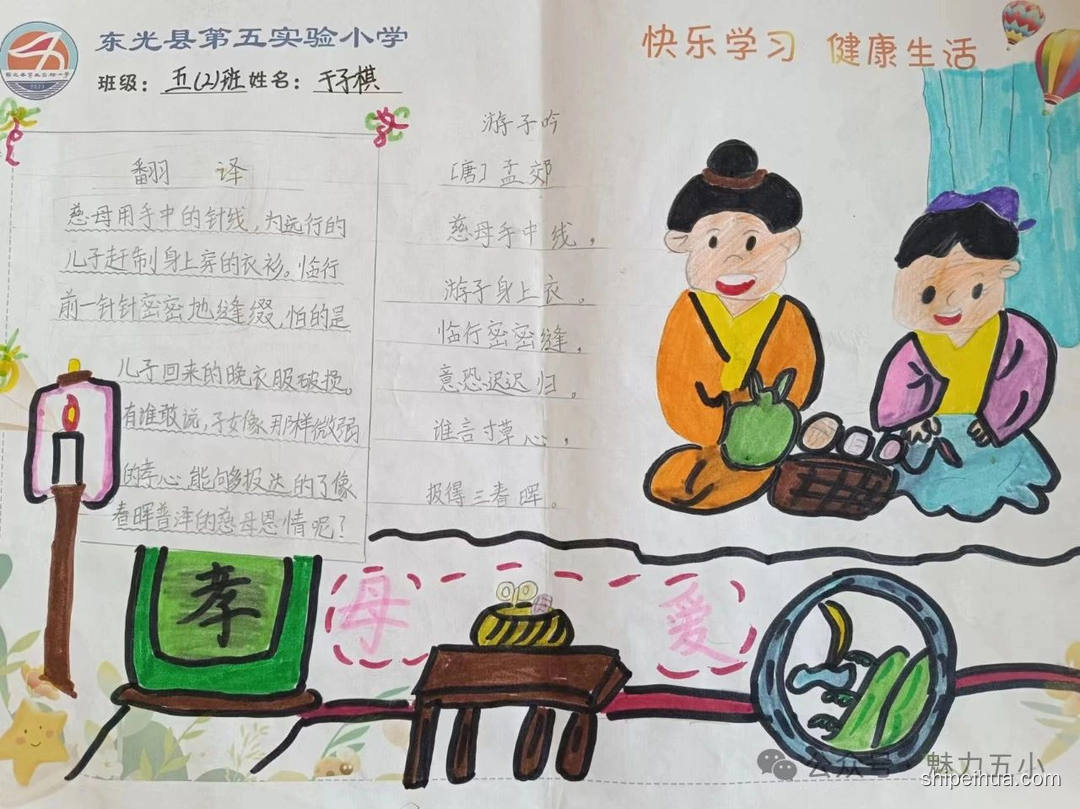 东光县第五实验小学
班级：五(2)班 姓名：于子棋
快乐学习 健康生活
翻 译
慈母用手中的针线，为远行的
儿子赶制身上穿的衣衫。临行
前一针针密密地缝缀，怕的是
儿子回来的晚衣服破损。
有谁敢说，子女像那样微弱
的孝心能够报达的了像
春晖普泽的慈母恩情呢？
游子吟
[唐] 孟郊
慈母手中线，
游子身上衣。
临行密密缝，
意恐迟迟归。
谁言寸草心，
报得三春晖。
孝
母
爱
公众号·魅力五小
shipeihua.com